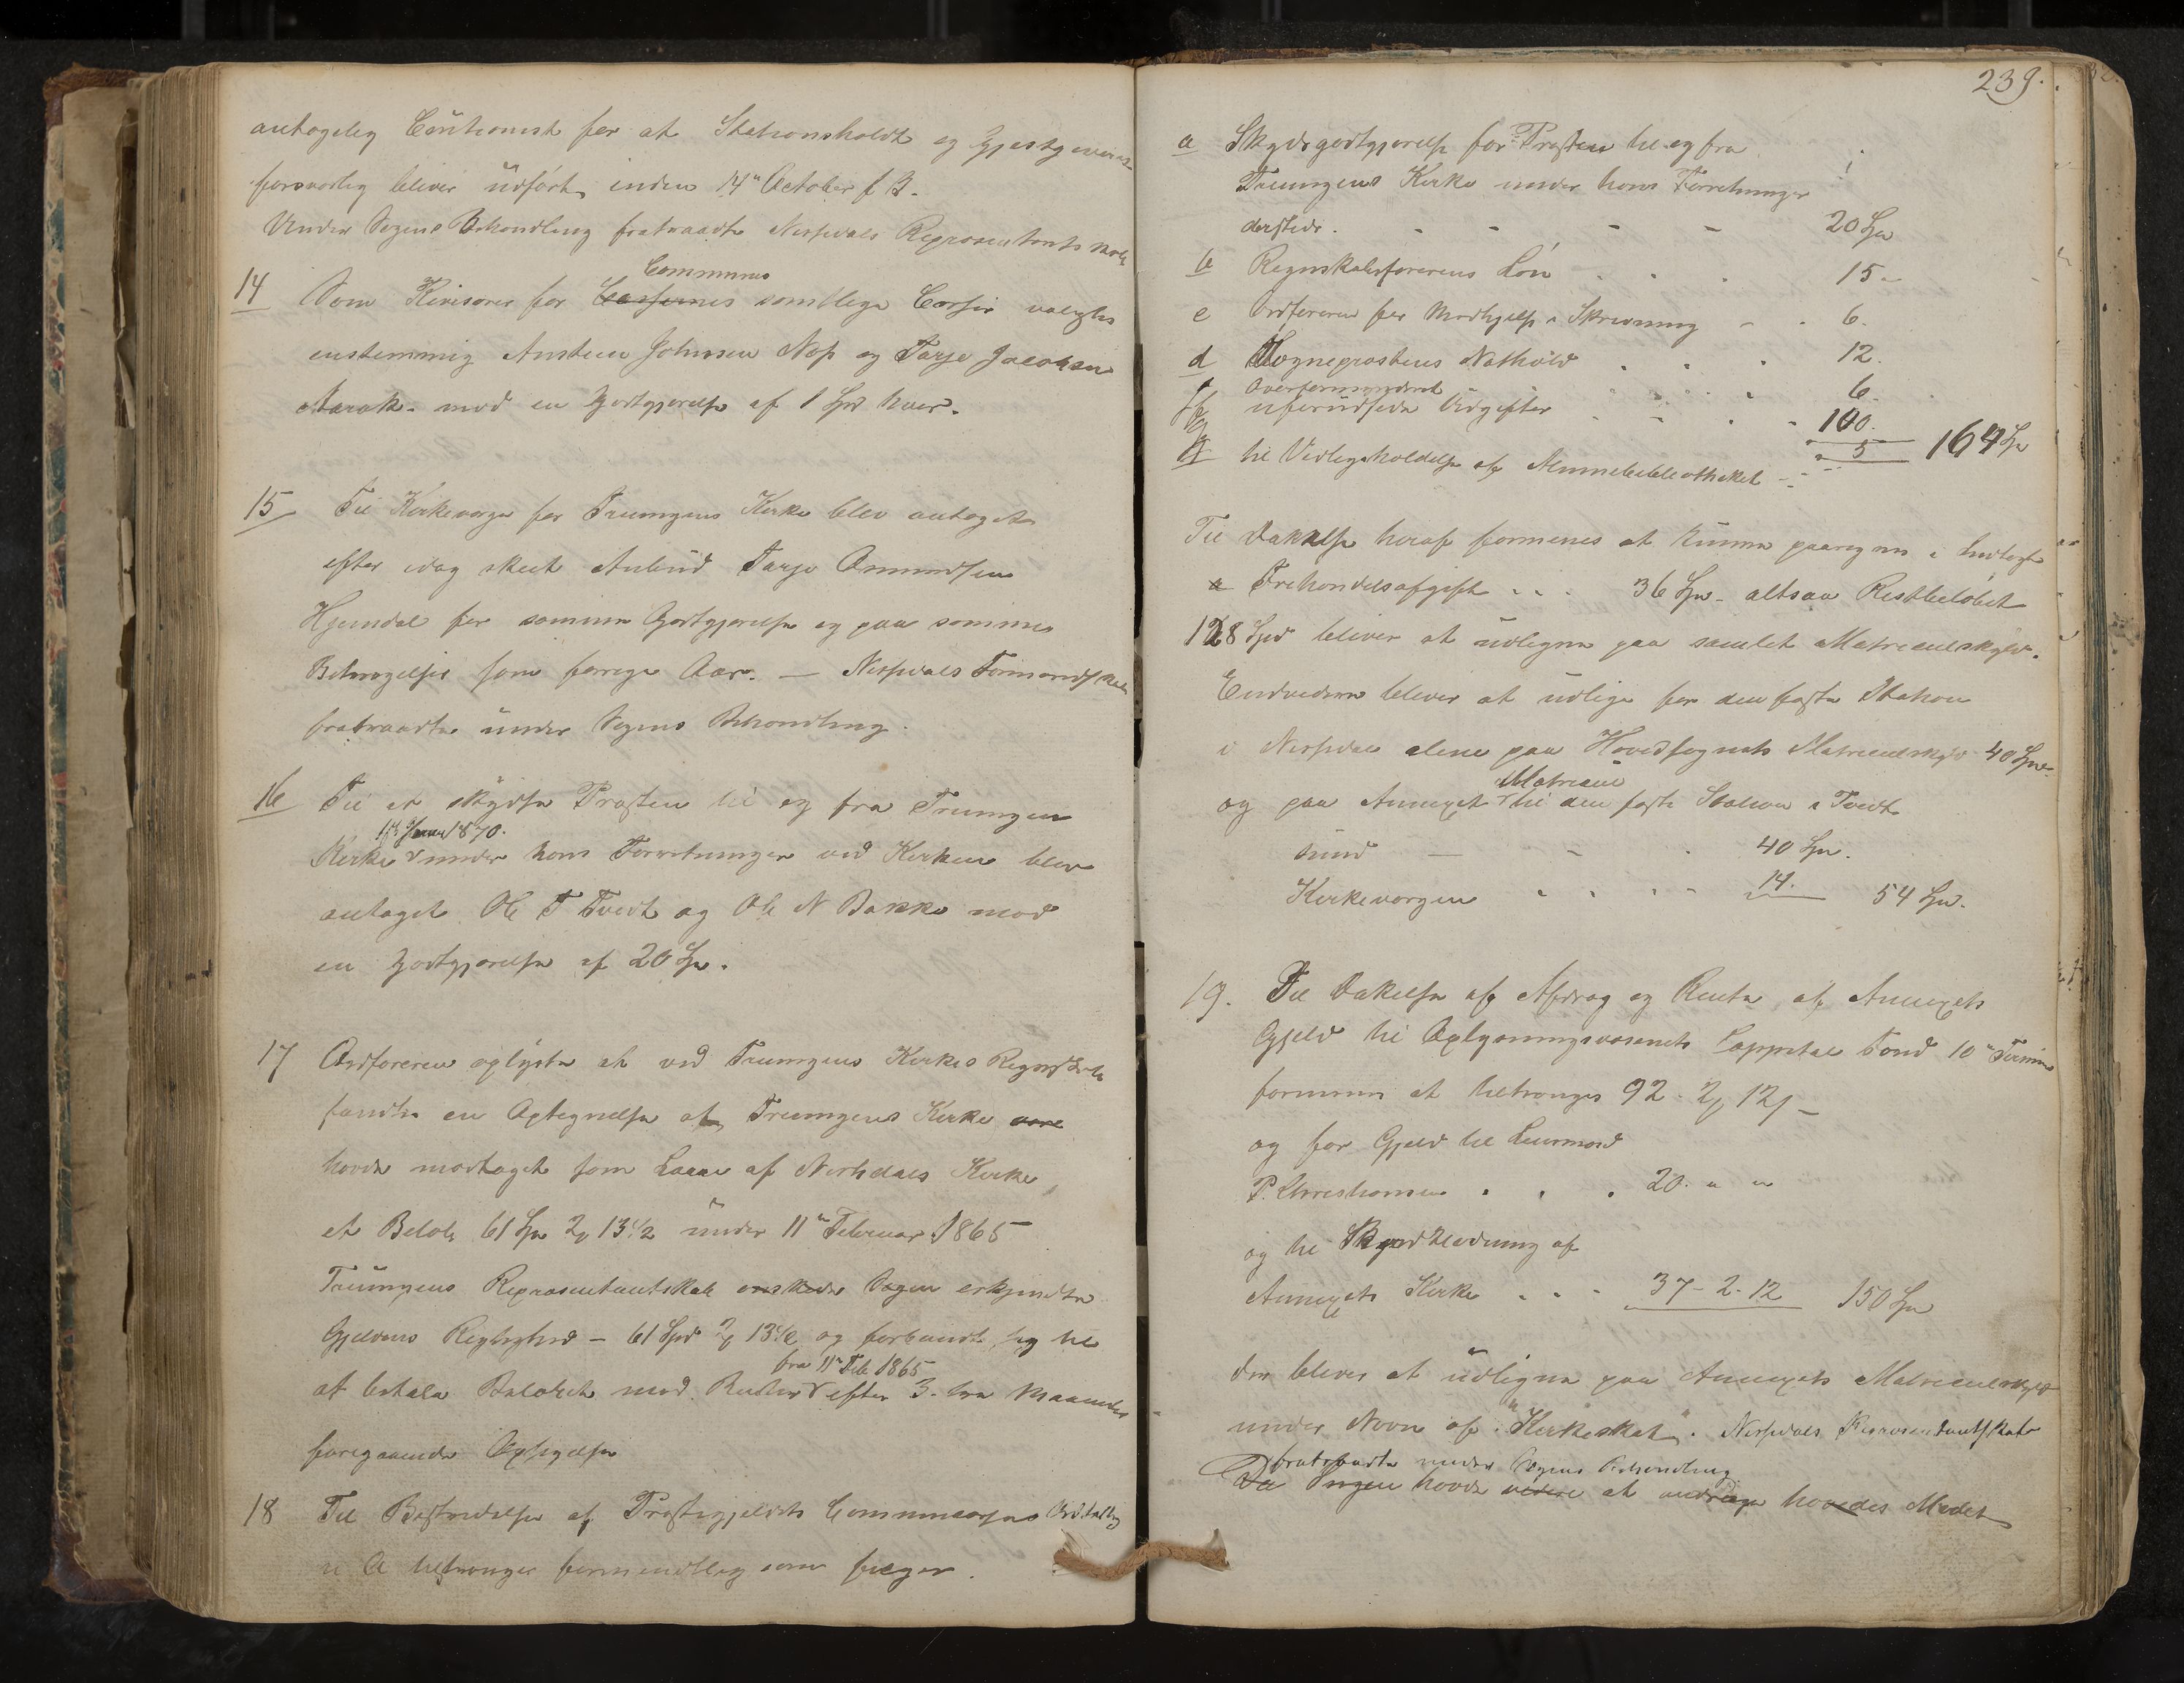 antagelig Cautionist for at Stationsholdt og Gjestgiveriet
forsvarlig bliver udført, inden 14de October f. A.
Under Sagens Behandling fratraadte Nissedals Repræsentantskab
14 Som Revisorer for Cassernes Communes samtlige Casser valgtes
enstemmig Austeen Johnsen Næs og Tarje Jacobsen
Aarak. mod en Godtgjørelse af 1 Spd hver.
15 Til Kirkeværge for Treungens Kirke blev antaget
efter idag skeet Anbud Tarje Amundsen
Hjemdal for samme Godtgjørelse og paa samme
Betingelser som forrige Aar. — Nissedals Formandskab
fratraadte under Sagens Behandling.
16 Til at skydse Præsten til og fra Treungen
Kirke 1ste Januar 1870. under hans Forretninger ved Kirken blev
antaget Ole T Tvedt og Ole N Bakke mod
en Godtgjørelse af 20 Spd.
17 Ordføreren oplyste at ved Treungens Kirkes Regnskab
fandtes en Optegnelse at Treungens Kirke vare
havde modtaget som Laan af Nissedals Kirke
et Beløb 61 Spd 2 ₰ 13 1/2 under 11te Februar 1865
Treungens Repræsentantskab ønskede Sagen erkjendte
Gjeldens Rigtighed – 61 Spd 2 ₰ 13 1/2 og forbandt sig til
at betale Beløbet med Renter fra 11te Feb 1865 efter 3. tre Maaneders
foregaaende Opsigelse
18 Til Bestridelse af Præstegjeldets Communecasses Udtælling
til A tiltrænges formentlig som følger.
239.
a Skydsgodtgjørelse for Præsten til og fra
Treungens Kirke under hans Forretninger
dersteds. - - - - 20 Spd
b Regnskabsførerens Løn . . . 15 –
c Ordføreren for Medhjelp i Skrivning - . 6.
d Sogneprestens Nathold . . . 12.
e Overformynderiet . . . . 6.
f uforudseede Udgifter . - . . 100.
g til Vedligeholdelse af Almuebibliotheket - 5 164 Spd
Til Dækkelse heraf formenes at kunne paaregnes i Indtægt
a Trehandelsafgift . . . 36 Spd – altsaa Restbeløbet
128 Spd bliver at udligne paa samlet Matriculskyld.
Endvidere bliver at udligne for den faste Station
i Nissedal alene paa Hovedsognets Matriculskyld 40 Spd
og paa Annexet Matricul til den faste Station i Tvedt
sund — - . 40 Spd.
Kirkeværgen . . . - 14. 54 Spd.
19. Til Dækelse af Afdrag og Rente af Annexets
Gjeld til Oplysningsvæsenets Cappital Fond 10de Termin
formenes at tiltrænges 92 - 2 ₰ 12 β –
og for Gjeld til Lensmand
P. Christiansen . . . 20. " "
og til Bordklædning af
Annexets Kirke . . - 37 – 2. 12 150 Spd
der bliver at udligne paa Annexets Matriculskyld
under Navn af "Kirkeskat". Nissedals Repræsentantskab
fratraadte under Sagens Behandling.
Da Ingen havde videre at andrage hævedes Mødet